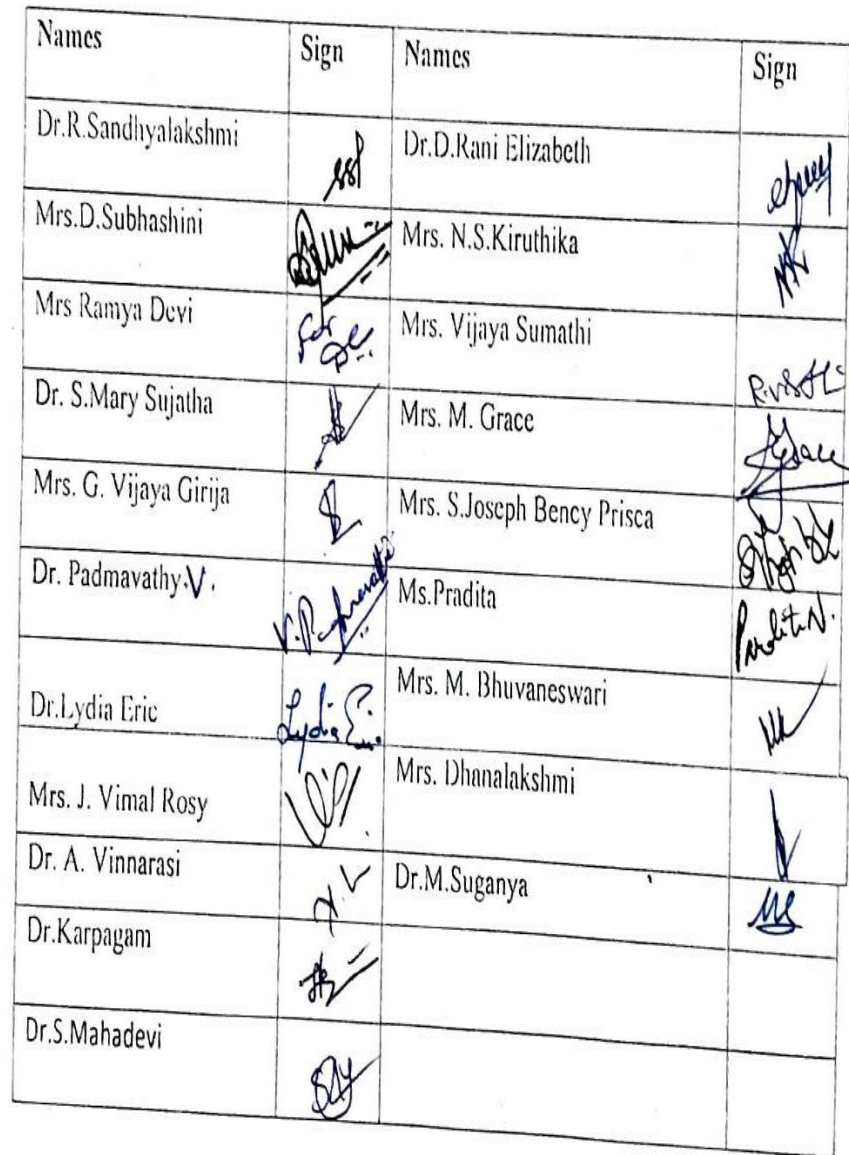 Names Sign Names Sign
Dr.R.Sandhyalakshmi Dr.D.Rani Elizabeth
Mrs.D.Subhashini Mrs. N.S.Kiruthika
Mrs Ramya Devi For Mrs. Vijaya Sumathi
Dr. S.Mary Sujatha Mrs. M. Grace Grace
Mrs. G. Vijaya Girija Mrs. S.Joseph Bency Prisca
Dr. Padmavathy.V. V. Padmavathy Ms.Pradita Pradita N.
Dr.Lydia Eric Lydia Mrs. M. Bhuvaneswari
Mrs. J. Vimal Rosy Mrs. Dhanalakshmi
Dr. A. Vinnarasi Dr.M.Suganya MS
Dr.Karpagam
Dr.S.Mahadevi